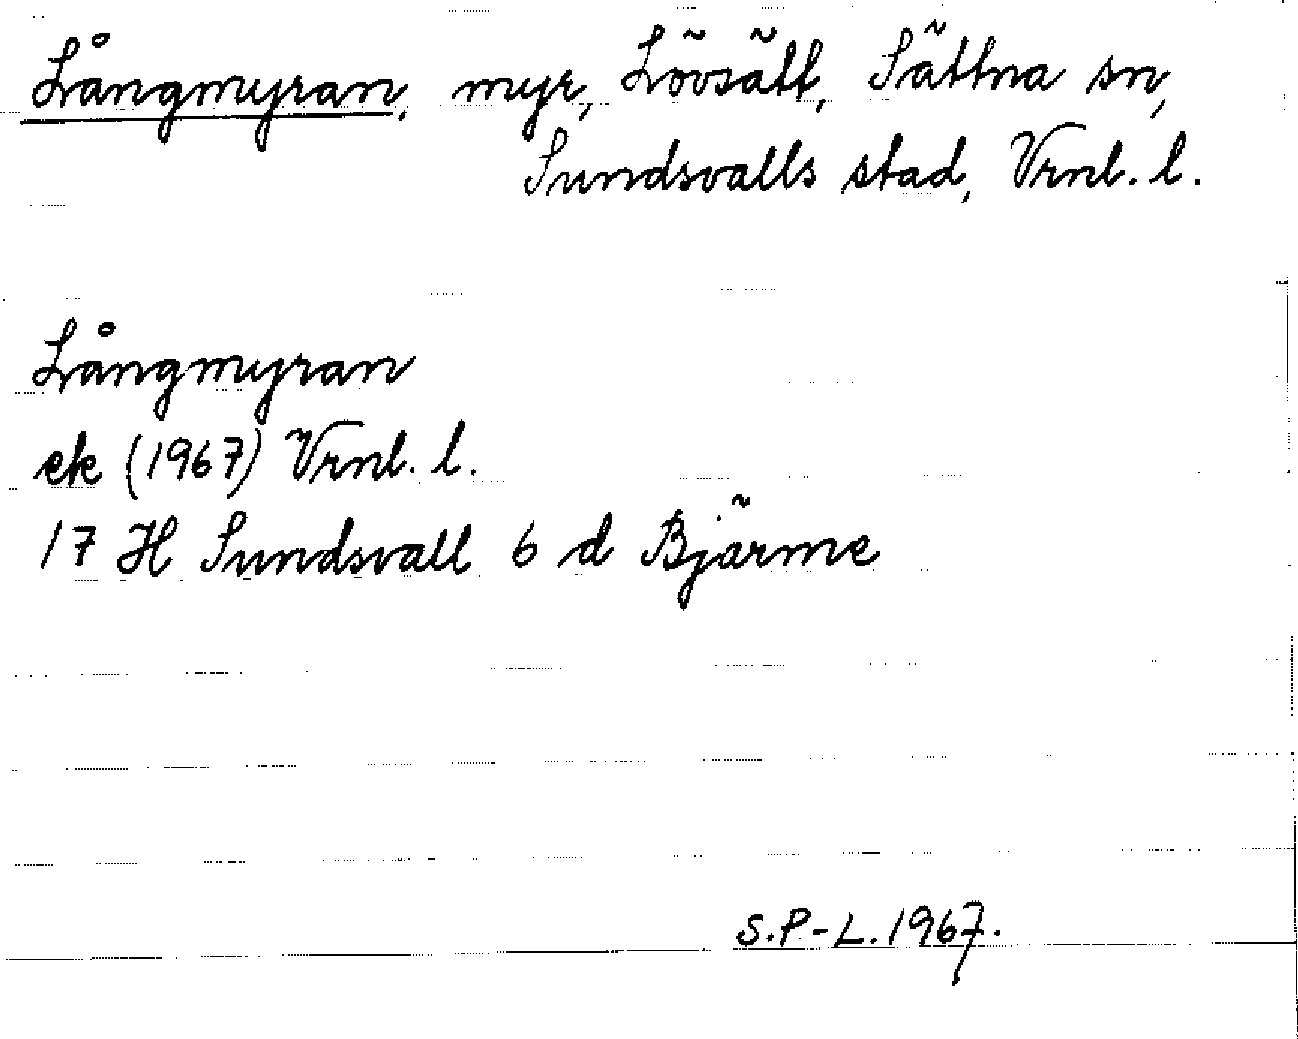 Långmyran, myr, Lövsätt, Sättna sn,
Sundsvalls stad, Vrnl. l.
Långmyran
ek (1967) Vrnl. l.
17 H Sundsvall 6 d Bjärme
S.P-L. 1967.